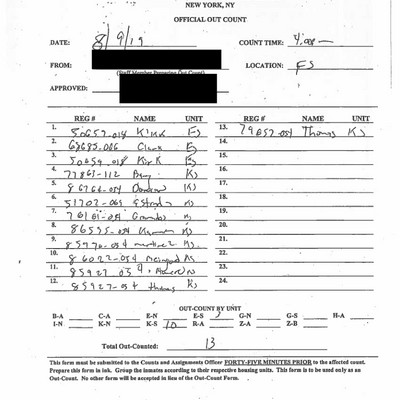 NEW YORK, NY
OFFICIAL OUT COUNT
DATE: 8/9/19 COUNT TIME: 4:00
FROM: LOCATION: FS
(Staff Member Preparing Out Count)
APPROVED:
REG # NAME UNIT REG # NAME UNIT
1. 80657-018 ES 13. 79657-054 Thomas KS
2. 68685-066 Clark ES 14.
3. 50659-018 Kirk ES 15.
4. 77863-112 KS 16.
5. KS 17.
6. 51702-069 KS 18.
7. KS 19.
8. 86555-054 KS 20.
9. 85976-054 Martinez KS 21.
10. 86022-054 KS 22.
11. 85927-054 KS 23.
12. 85927-054 Thomas KS 24.
OUT-COUNT BY UNIT
B-A C-A E-N E-S 3 G-N G-S H-A
I-N K-N K-S 10 R-A Z-A Z-B
Total Out-Counted: 13
This form must be submitted to the Counts and Assignments Officer FORTY-FIVE MINUTES PRIOR to the affected count.
Prepare this form in ink. Group the inmates according to their respective housing units. This form is to be used only as an
Out-Count. No other form will be accepted in lieu of the Out-Count Form.